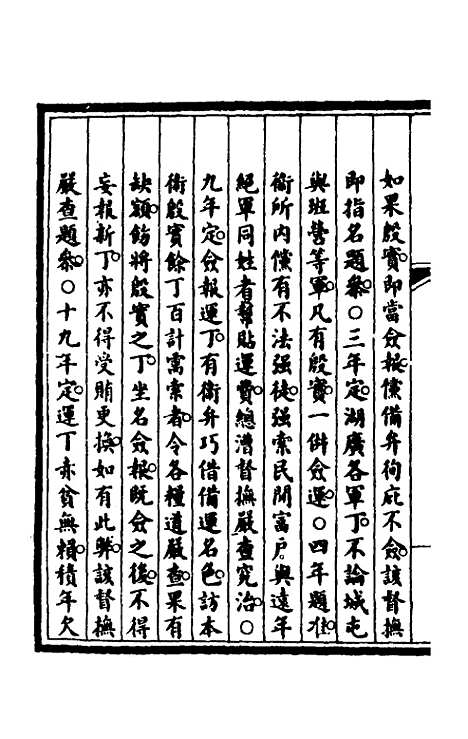 如果殷實即當僉報儻備弁徇庇不僉該督撫
即指名題參○三年定湖廣各軍丁不論城屯
與班營等軍凡有殷實一併僉運○四年題准
衞所內儻有不法强徒强索民間富戶與遠年
絕軍同姓者幫貼運費總漕督撫嚴查究治○
九年定僉報運丁有衞弁巧借備運名色訪本
衞殷實餘丁百計需索者令各糧道嚴查果有
缺額飭將殷實之丁坐名僉報旣僉之後不得
妄報新丁亦不得受賄更換如有此弊該督撫
嚴查題參○十九年定運丁赤貧無賴積年欠